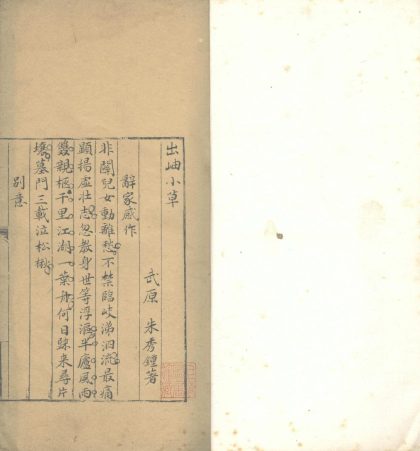 出岫小草
武原 朱秀鍾著
辭家感作
非關兒女動離愁不禁臨岐涕泗流最痛
顯揚虛壯志忽教身世等浮漚半廬風雨
雙親柩千里江湖一葉舟何日歸來尋片
壤墓門三載泣松楸
別意